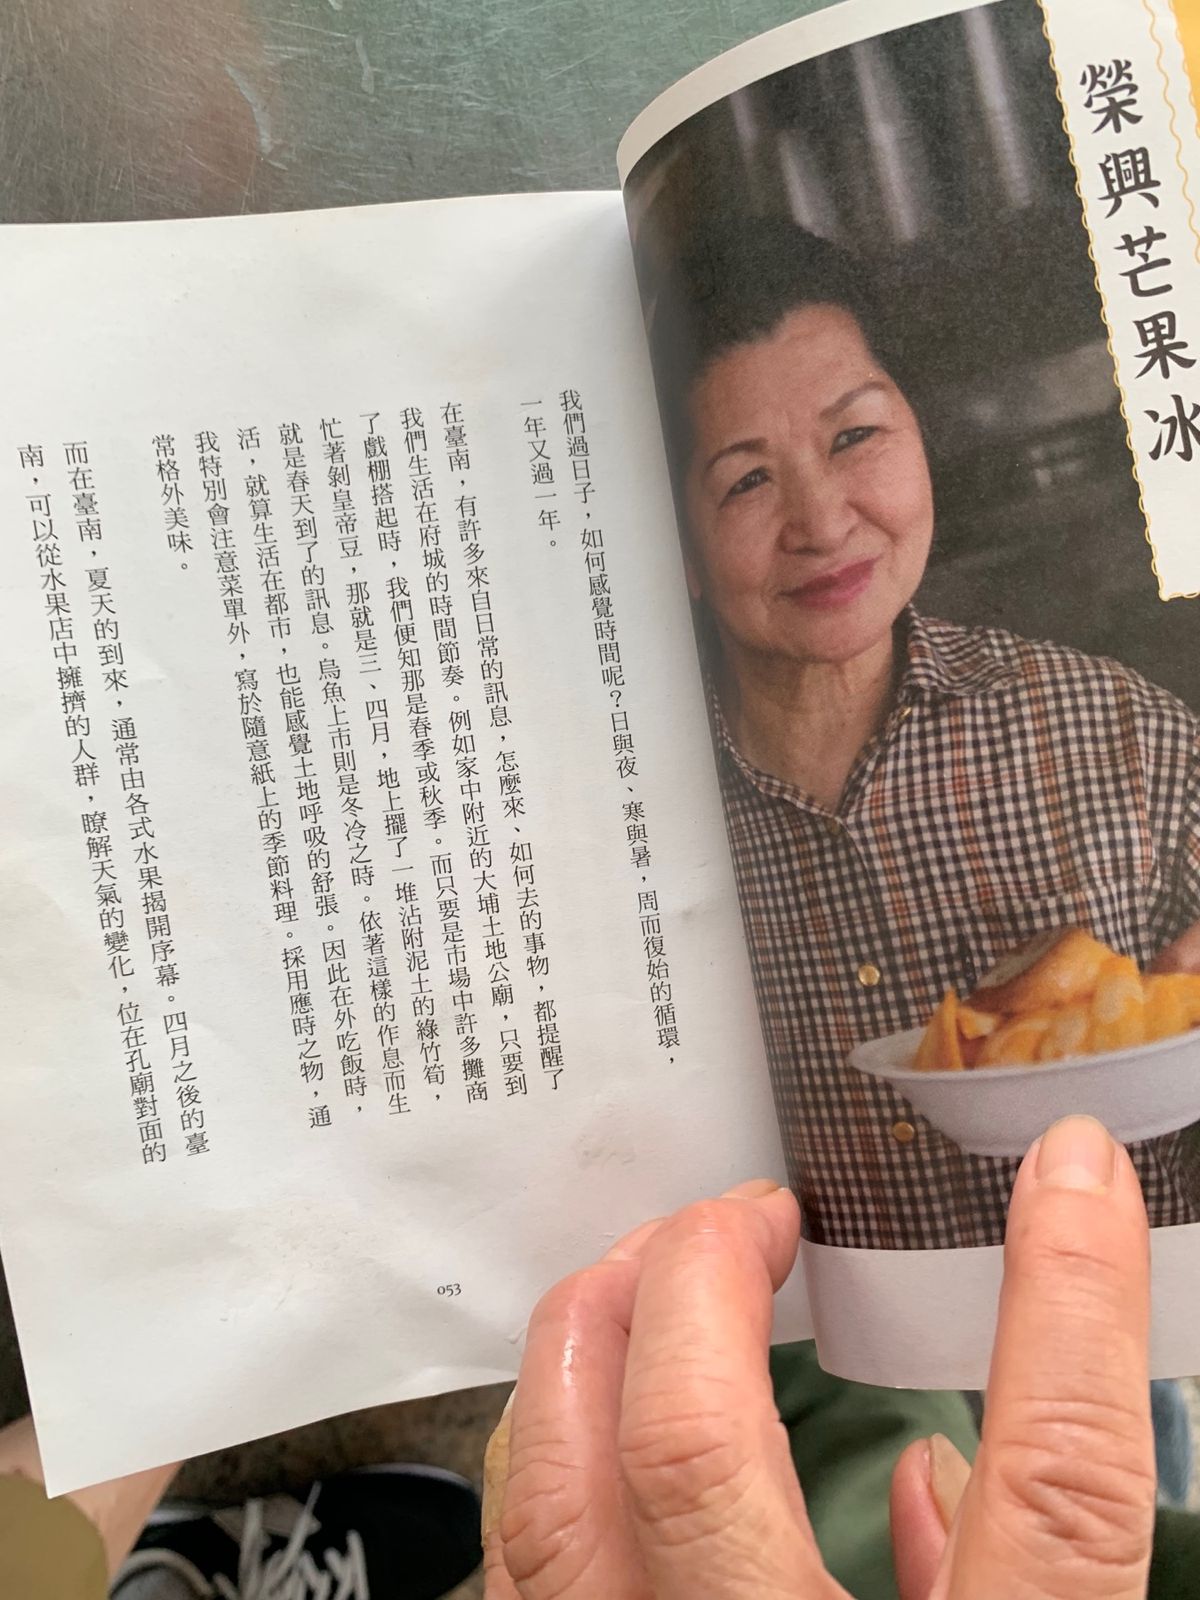 榮興芒果冰
我們過日子，如何感覺時間呢？日與夜、寒與暑，周而復始的循環，
一年又過一年。
在臺南，有許多來自日常的訊息，怎麼來、如何去的事物，都提醒了
我們生活在府城的時間節奏。例如家中附近的大埔土地公廟，只要到
了戲棚搭起時，我們便知那是春季或秋季。而只要是市場中許多攤商
忙著剝皇帝豆，那就是三、四月，地上擺了一堆沾附泥土的綠竹筍，
就是春天到了的訊息。烏魚上市則是冬冷之時。依著這樣的作息而生
活，就算生活在都市，也能感覺土地呼吸的舒張。因此在外吃飯時，
我特別會注意菜單外，寫於隨意紙上的季節料理。採用應時之物，通
常格外美味。
而在臺南，夏天的到來，通常由各式水果揭開序幕。四月之後的臺
南，可以從水果店中擁擠的人群，瞭解天氣的變化，位在孔廟對面的
053